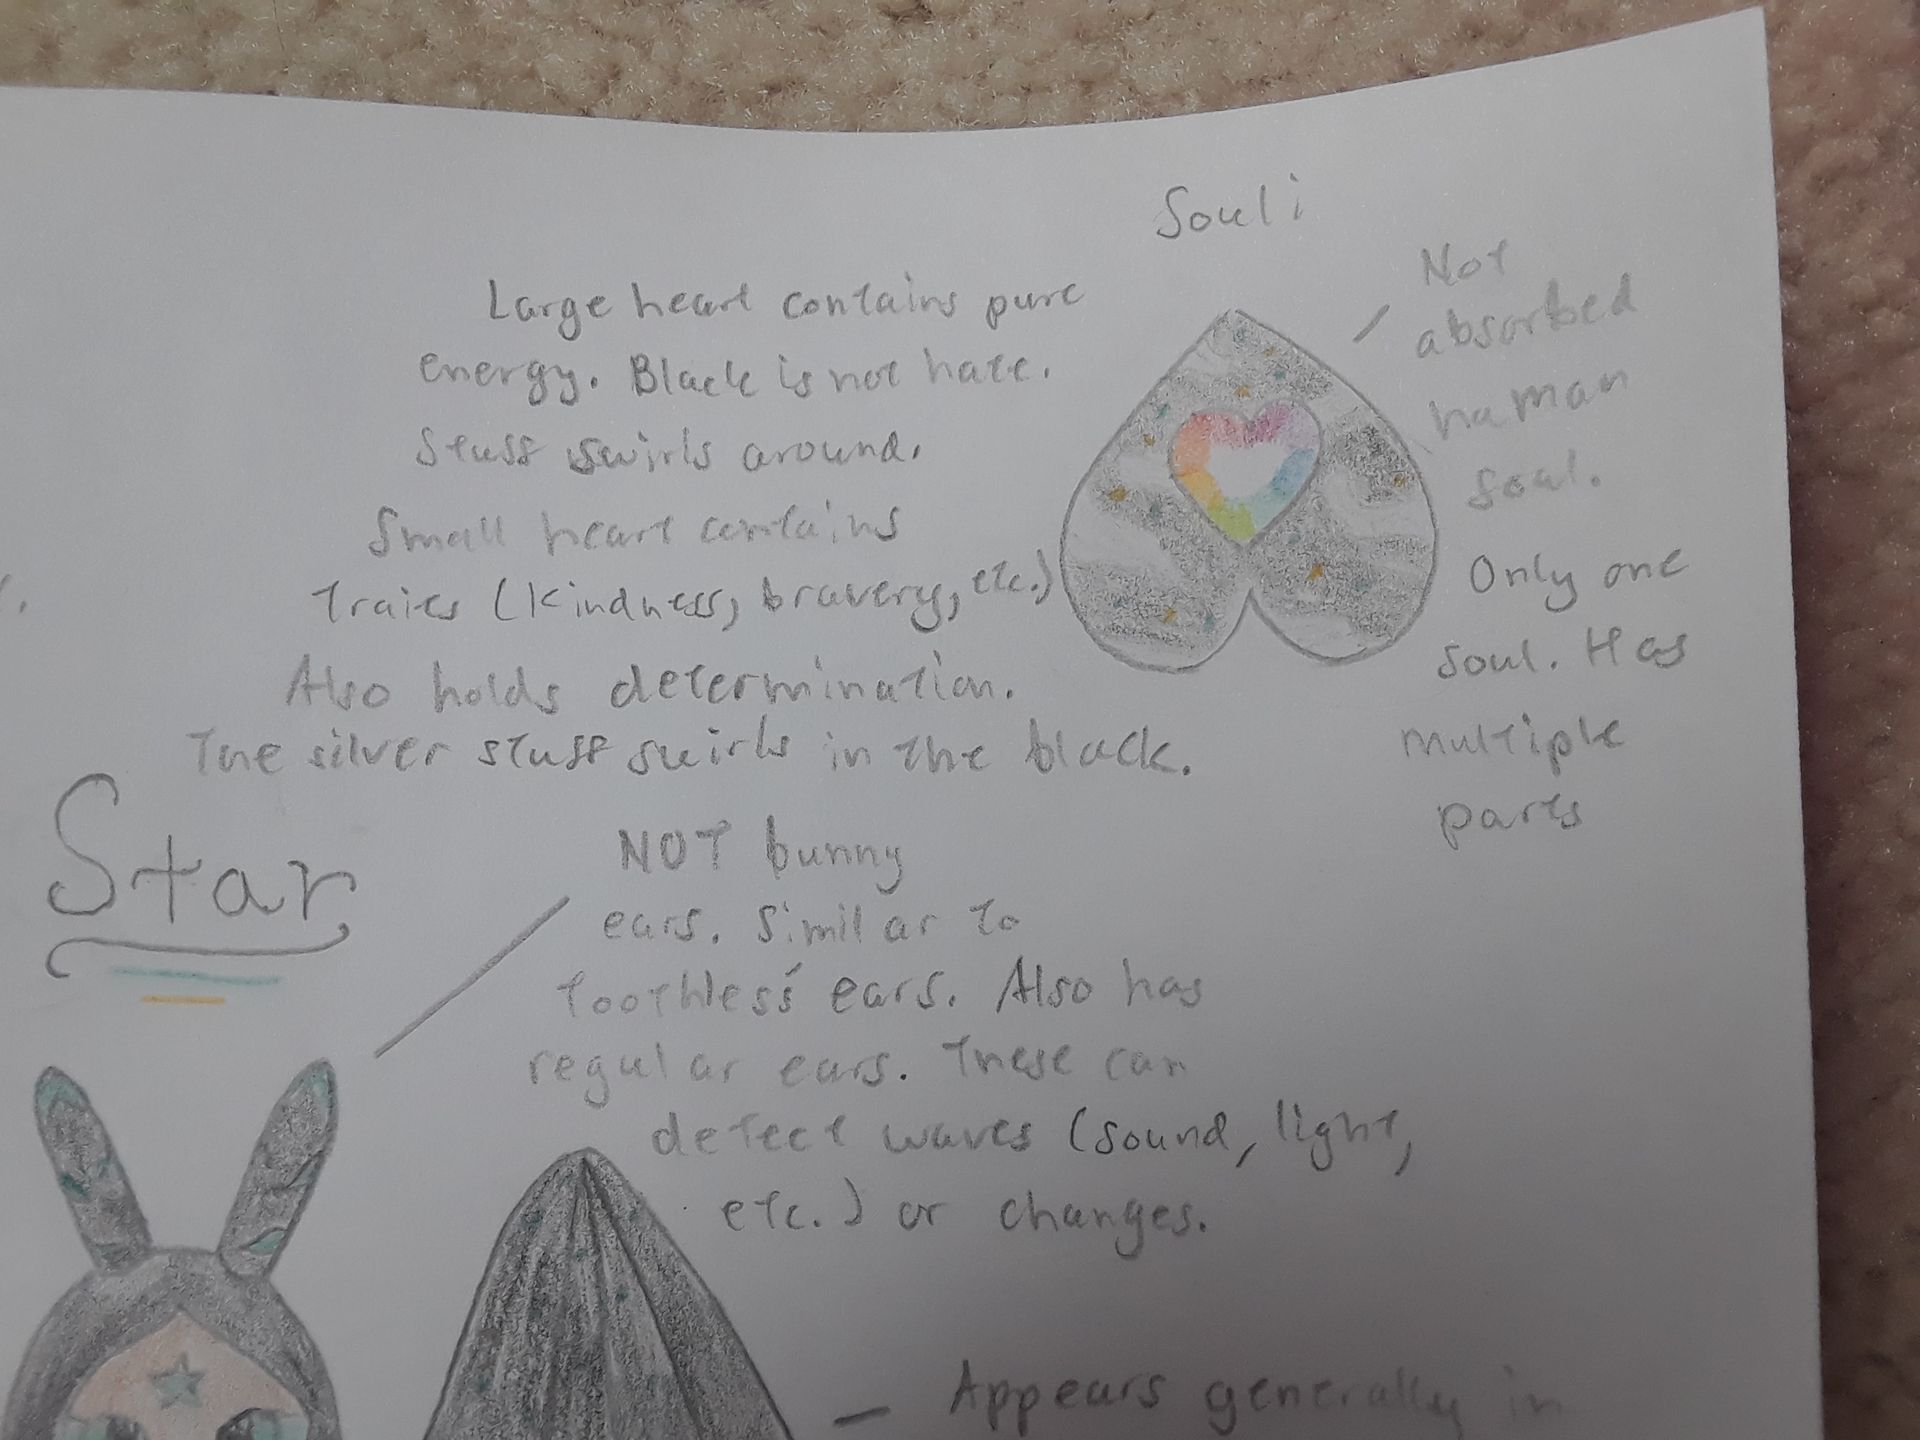 Soul:
Large heart contains pure
energy. Black is not hate.
Stuff swirls around.
Small heart contains
traits (kindness, bravery, etc.)
Also holds determination.
The silver stuff swirls in the black.
Not
absorbed
human
soul.
Only one
soul. Has
multiple
parts
Star
NOT bunny
ears. Similar to
Toothless' ears. Also has
regular ears. These can
detect waves (sound, light,
etc.) or changes.
Appears generally in